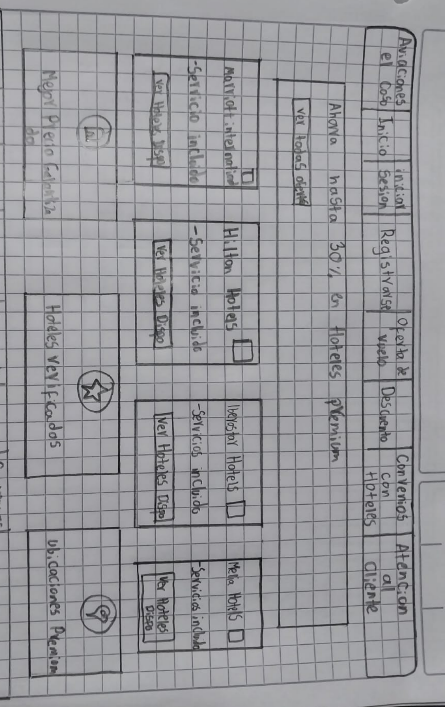 Aviaciones el Coso
Inicio
iniciar Sesion
Registrarse
Oferta de vuelo
Descuento
Convenios con Hoteles
Atencion al cliente
Ahora hasta 30% en Hoteles premium
ver todas ofertas
Marriott international
-Servicio incluido
Ver Hoteles Dispo
Hilton Hotels
-Servicio incluido
Ver Hoteles Dispo
Iberostar Hotels
-Servicios incluido
Ver Hoteles Dispo
Melia Hotels
-Servicios incluido
Ver Hoteles Dispo
Mejor Precio Garantizado
Hoteles verificados
Ubicaciones Premium